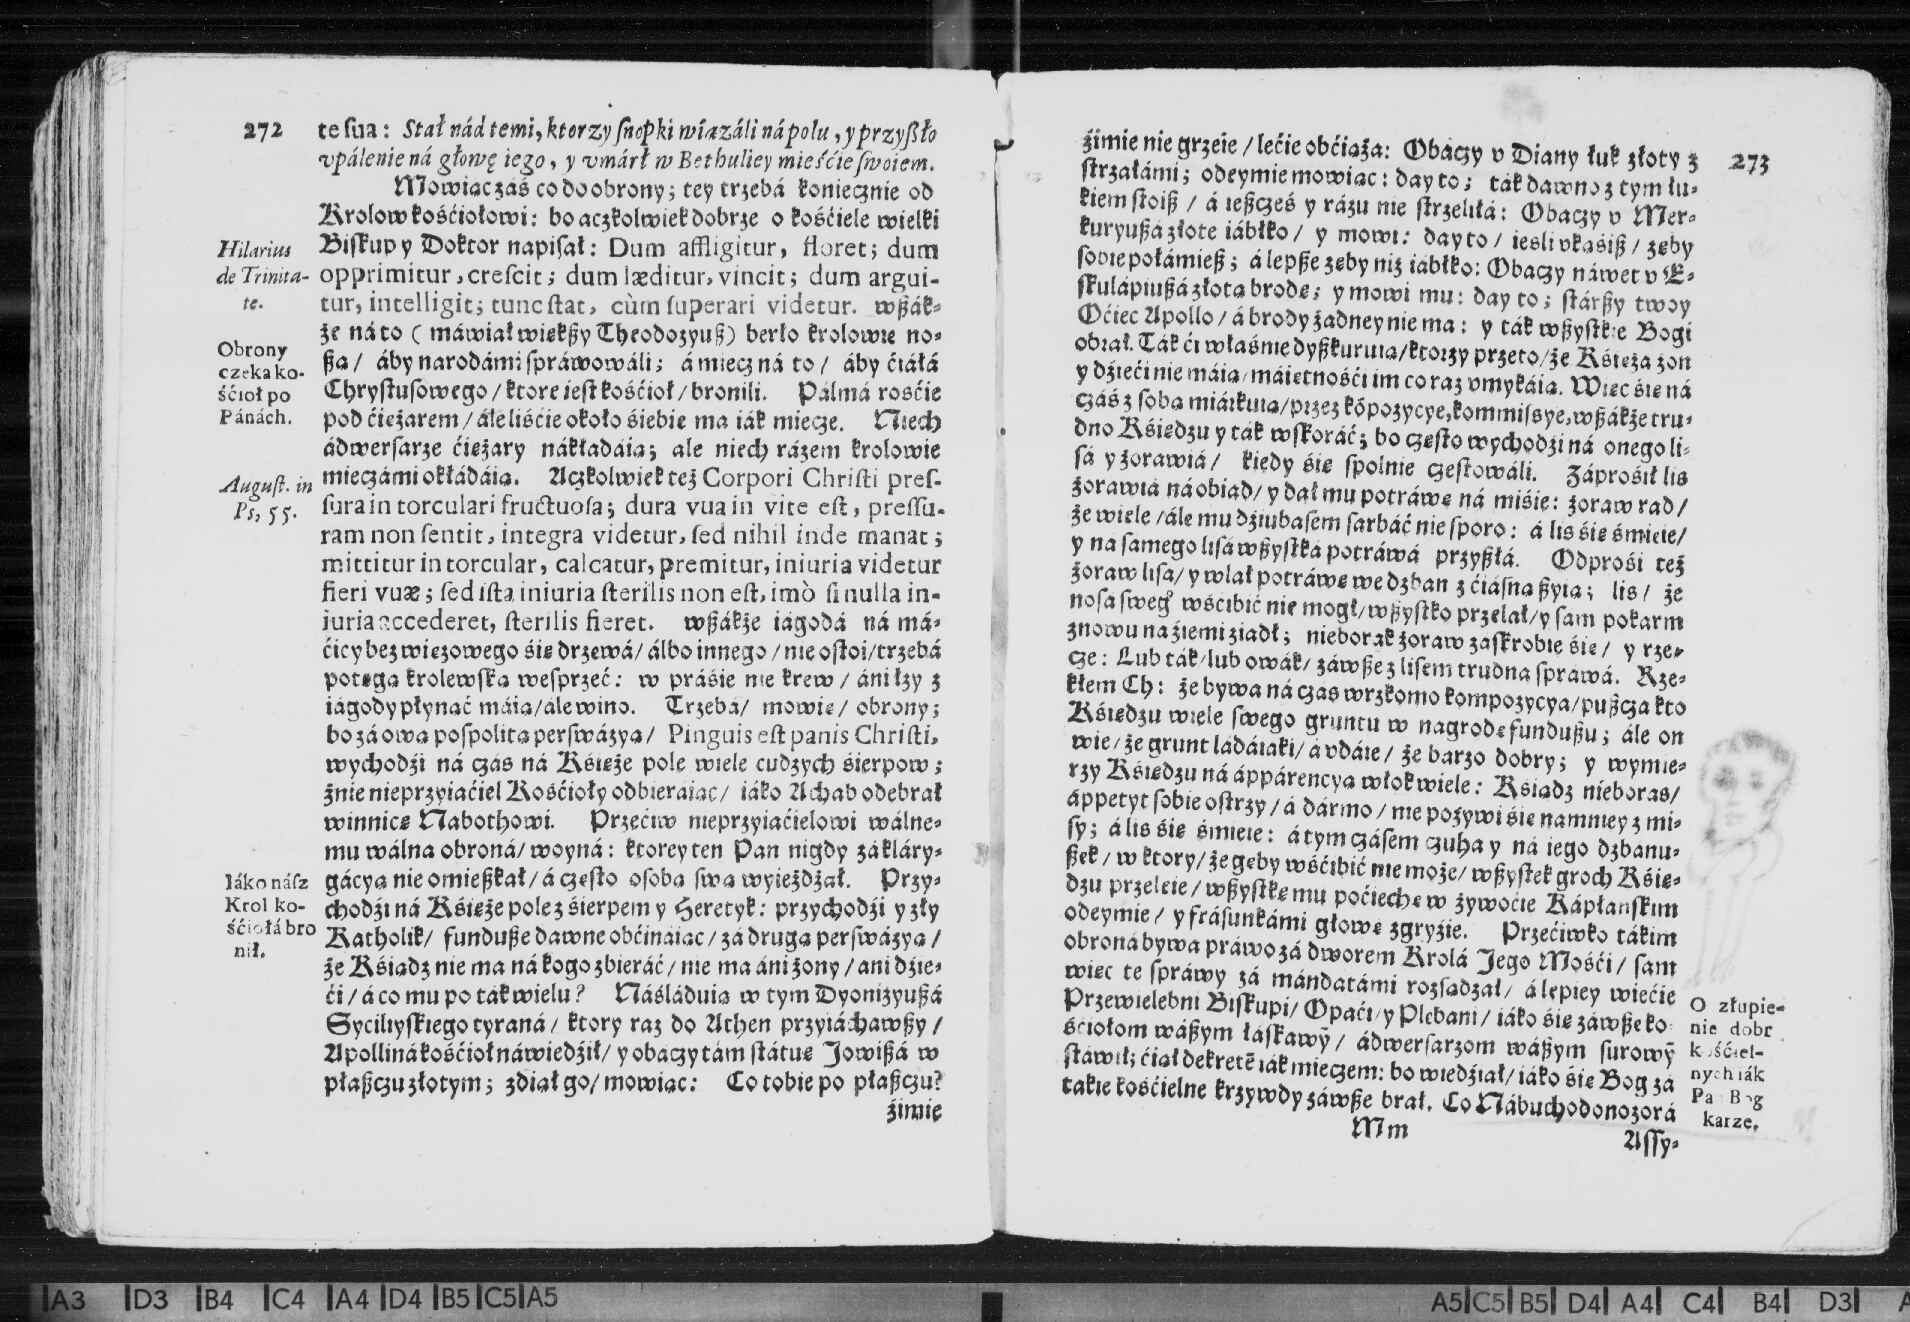 272
te sua: Stał nád temi, ktorzy snopki wiązáli ná polu, y przyßło
vpálenie ná głowę iego, y vmárł w Bethuliey mieśćie swoiem.
Mowiąc záś co do obrony; tey trzebá koniecznie od
Krolow kośćiołowi: bo aczkolwiek dobrze o kośćiele wielki
Biskup y Doktor napisał: Dum affligitur, floret; dum
opprimitur, crescit; dum læditur, vincit; dum argui-
tur, intelligit; tunc stat, cùm superari videtur. wßák-
że ná to ( máwiał więkßy Theodozyuß) berło krolowie no-
ßą/ áby narodámi spráwowáli; á miecz ná to/ áby ćiáłá
Chrystusowego/ ktore iest kośćioł/ bronili. Palmá rośćie
pod ćiężarem/ ále liśćie około śiebie ma iák miecze. Niech
ádwersarze ćiężary nákłádáią; ale niech rázem krolowie
mieczámi okłádáią. Aczkolwiek też Corpori Christi pres-
sura in torculari fructuosa; dura vua in vite est, pressu-
ram non sentit, integra videtur, sed nihil inde manat;
mittitur in torcular, calcatur, premitur, iniuria videtur
fieri vuæ; sed ista iniuria sterilis non est, imò si nulla in-
iuria accederet, sterilis fieret. wßákże iágodá ná má-
ćicy bez więzowego śię drzewá/ álbo innego/ nie ostoi/ trzebá
potęgą krolewską wesprzeć: w práśie nie krew/ áni łzy z
iágody płynąć máią/ ale wino. Trzebá/ mowię/ obrony;
bo zá ową pospolitą perswázyą/ Pinguis est panis Christi,
wychodźi ná czás ná Kśięże pole wiele cudzych śierpow;
żnie nieprzyiaćiel Kośćioły odbieráiąc/ iáko Achab odebrał
winnicę Nabothowi. Przećiw nieprzyiaćielowi wálne-
mu wálna obroná/ woyná: ktorey ten Pan nigdy zákláry-
gácyą nie omießkał/ á często osobą swą wyieżdżał. Przy-
chodźi ná Kśięże pole z śierpem y Heretyk: przychodźi y zły
Katholik/ fundußę dawne obćináiąc/ zá drugą perswázyą/
że Kśiądz nie ma ná kogo zbieráć/ nie ma áni żony/ ani dźie-
ći/ á co mu po ták wielu? Náśláduią w tym Dyonizyußá
Sycilyiskiego tyraná/ ktory raz do Athen przyiáchawßy/
Apollina kośćioł náwiedźił/ y obaczy tám státuę Jowißá w
płaßczu złotym; zdiął go/ mowiąc: Co tobie po płaßczu?
źimie
Hilarius
de Trinita-
te.
Obrony
czeka ko-
śćioł po
Pánách.
August. in
Ps, 55.
Iáko nász
Krol ko-
śćiołá bro
nił.
273
źimie nie grzeie/ lećie obćiąża: Obáczy v Diany łuk złoty z
strzałámi; odeymie mowiąc: day to; ták dawno z tym łu-
kiem stoiß/ á ießcześ y rázu nie strzeliłá: Obaczy v Mer-
kuryußá złote iábłko/ y mowi: day to/ iesli vkąśiß/ zęby
sobie połámieß; á lepße zęby niż iábłko: Obaczy náwet v E-
skulápiußá złotą brodę; y mowi mu: day to; stárßy twoy
Oćiec Apollo/ á brody żadney nie ma: y ták wßystkie Bogi
obrał. Ták ći właśnie dyßkuruią/ ktorzy przeto/ że Kśięża żon
y dźieći nie máią/ máiętnośći im co raz vmykáią. Więc śię ná
czás z sobą miárkuią/ przez kōpozycye, kommissye, wßákże tru-
dno Kśiędzu y ták wskoráć; bo często wychodźi ná onego li-
sá y żorawiá/ kiedy śię spolnie częstowáli. Záprośił lis
żorawiá ná obiad/ y dał mu potráwę ná miśie: żoraw rad/
że wiele/ ále mu dźiubasem sarbáć nie sporo: á lis śię śmieie/
y na samego lisá wßystká potráwá przyßłá. Odprośi też
żoraw lisa/ y wlał potráwę we dzban z ćiásną ßyią; lis/ że
nosa swegº wśćibić nie mogł/ wßystko przelał/ y sam pokarm
znowu na źiemi ziadł; nieborak żoraw zaskrobie śię/ y rze-
cze: Lub ták/ lub owák/ záwße z lisem trudna sprawá. Rze-
kłem Ch: że bywa ná czás wrzkomo kompozycya/ pußcza kto
Kśiędzu wiele swego gruntu w nagrodę fundußu; ále on
wie/ że grunt ládáiáki/ á vdáie/ że barzo dobry; y wymie-
rzy Kśiędzu ná áppárencyą włok wiele: Kśiądz nieboras/
áppetyt sobie ostrzy/ á dármo/ nie pożywi śię namniey z mi-
sy; á lis śię śmieie: á tym czásem czuha y ná iego dzbanu-
ßek/ w ktory/ że gęby wśćibić nie może/ wßystek groch Kśię-
dzu przeleie/ wßystkę mu poćiechę w żywoćie Kápłanskim
odeymie/ y frásunkámi głowę zgryzie. Przećiwko tákim
obroná bywa práwo zá dworem Krolá Jego Mośći/ sam
więc te spráwy zá mándatámi rozsądzał/ á lepiey wiećie
Przewielebni Biskupi/ Opaći/ y Plebani/ iáko śię záwße ko-
śćiołom wáßym łáskawȳ/ ádwersarzom wáßym surowȳ
stáwił; ćiął dekretē iák mieczem: bo wiedźiał/ iáko śię Bog zá
tákie kośćielne krzywdy záwße brał. Co Nábuchodonozorá
Mm
Assy-
O złupie-
nie dobr
kośćiel-
nych iák
Pan Bog
karze.
A3 D3 B4 C4 A4 D4 B5 C5 A5
A5 C5 B5 D4 A4 C4 B4 D3